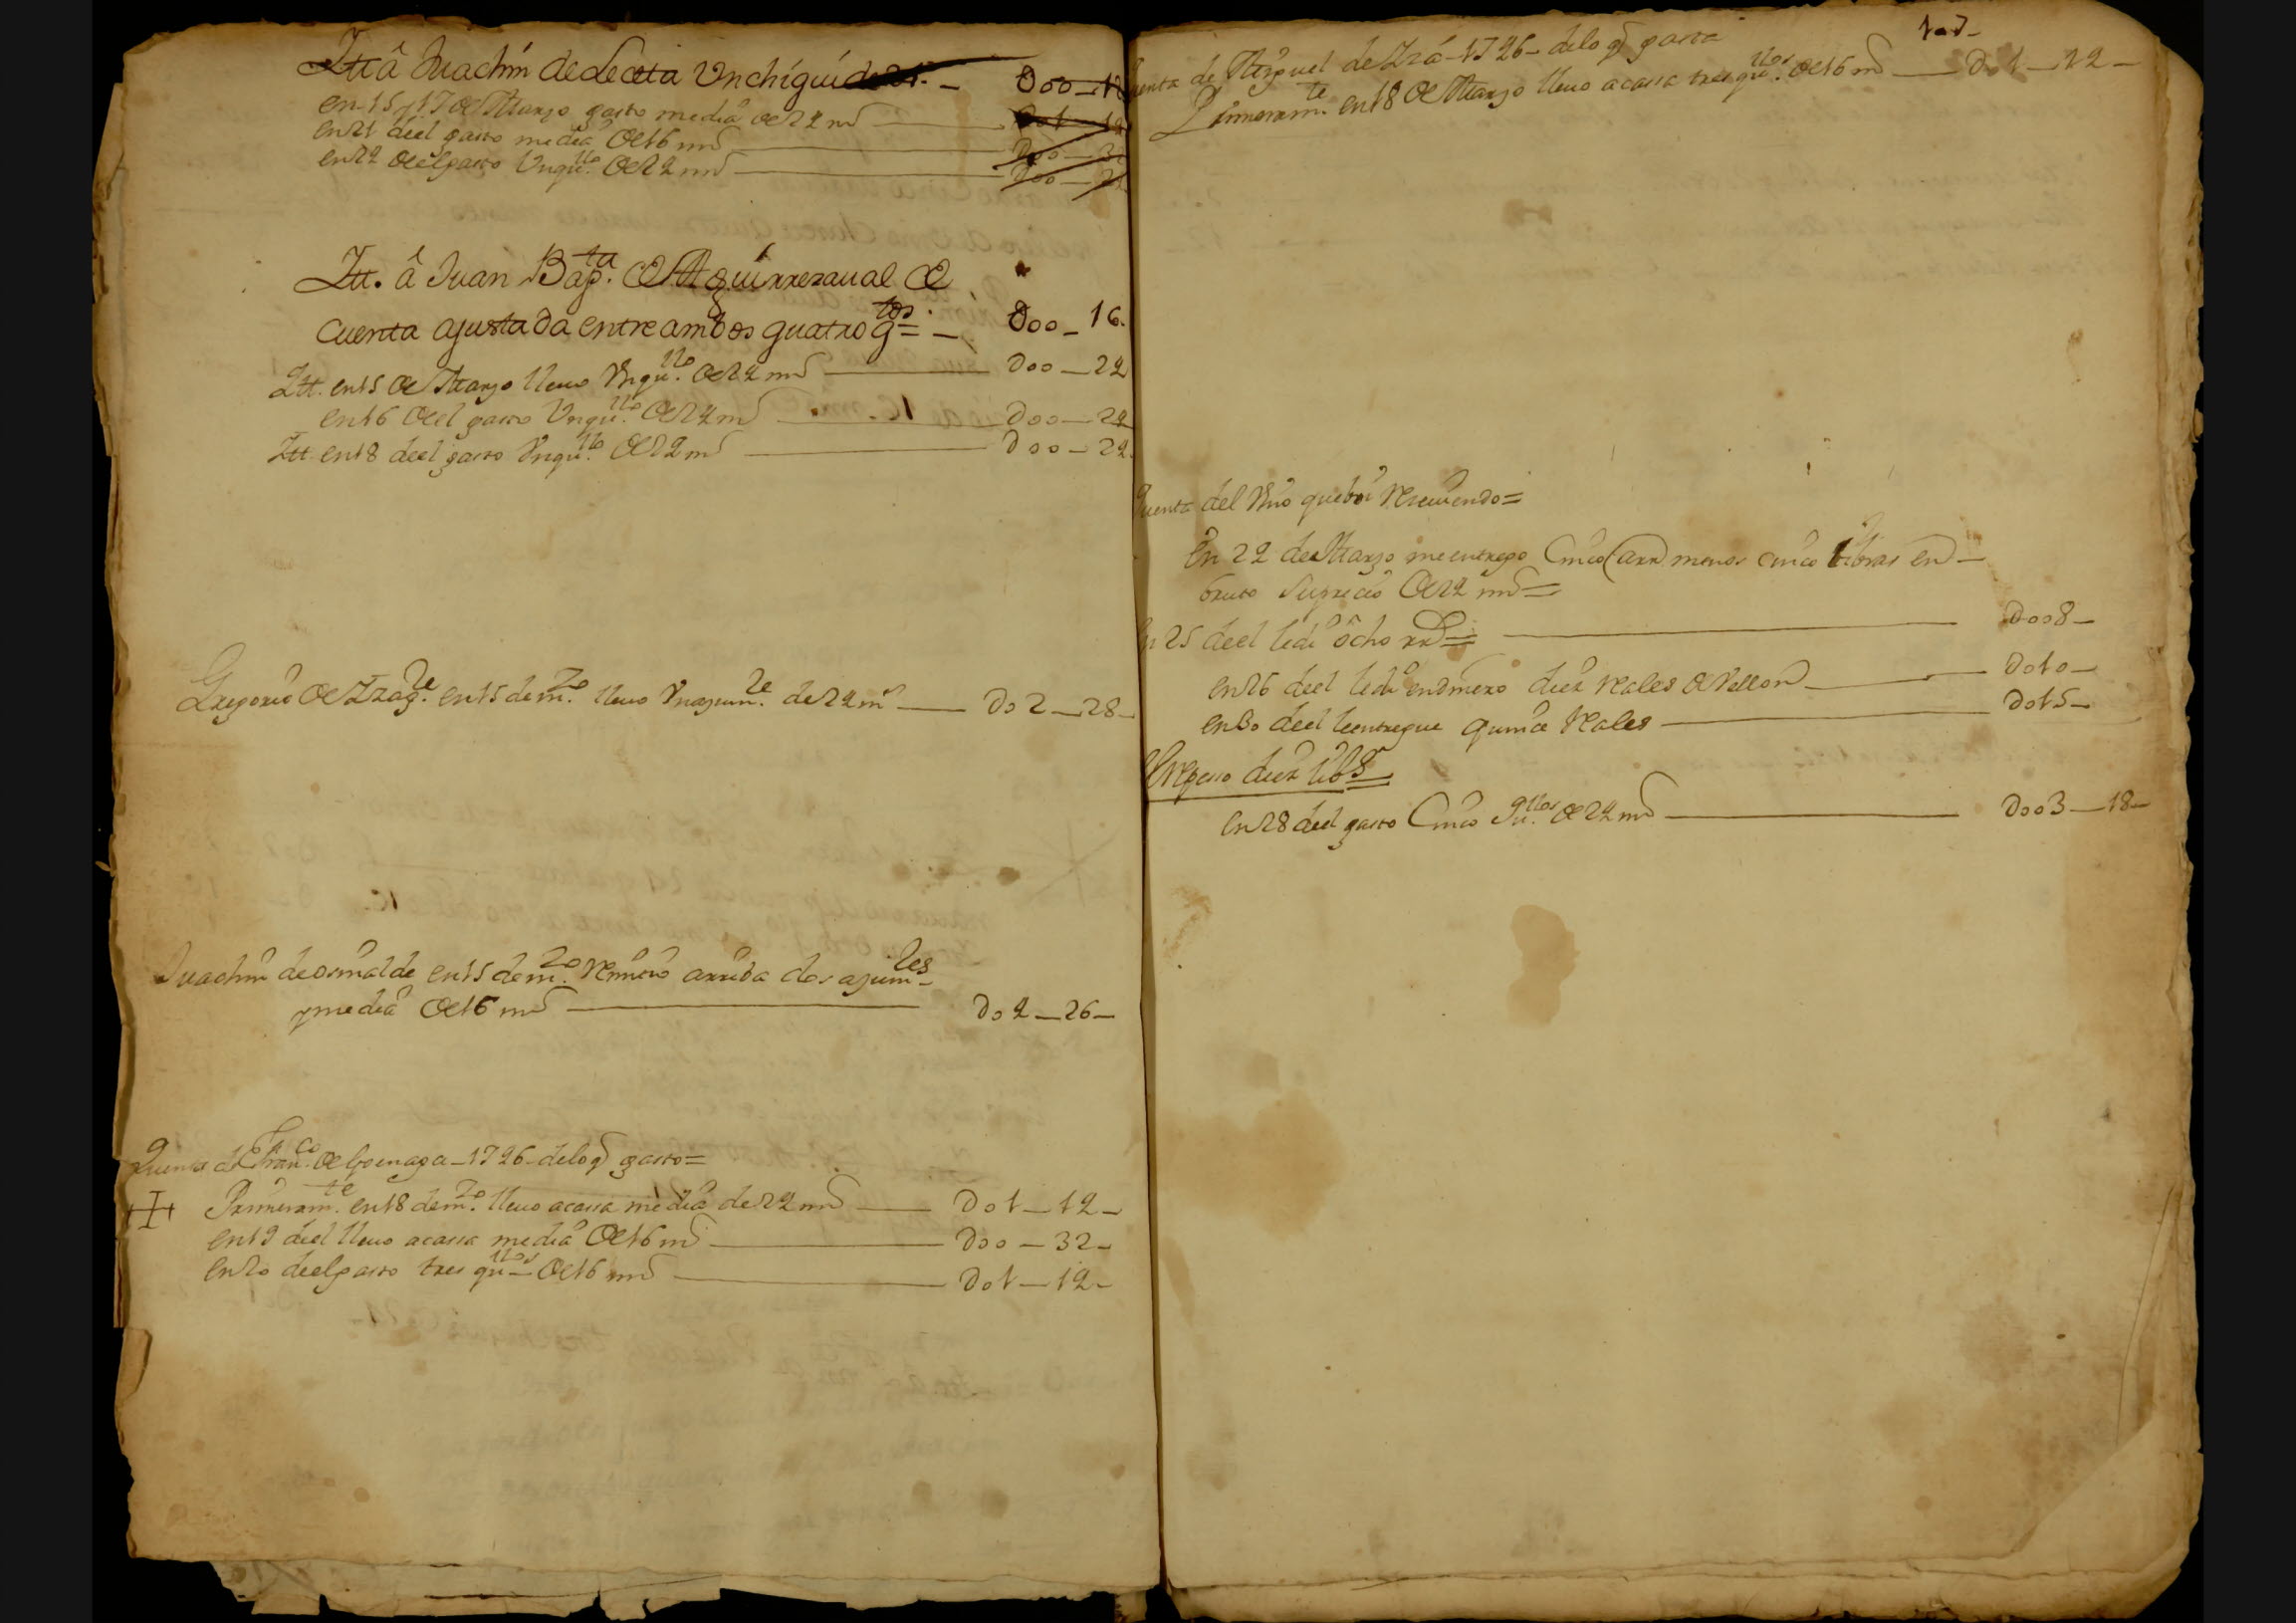 Itt â Juachin de Leceta Un chiguí de 21. — D00—12
en 15 y 17 de Marzo gasto media de 22 md — D01—12
en 21 deel gasto media de 16 md — D00—32
en 22 deel gasto Un qullo. de 22 md — D00—22
Itt. â Juan Bapta. de Aguirrezaual de
cuenta ajustada entre ambos quatro qtos = — D00—16.
Itt. en 15 de Marzo lleuo Un qullo. de 22 md — D00—22
en 16 deel gasto Un qullo. de 22 md — D00—22
Itt en 18 deel gasto Un qullo. de 22 md — D00—22.
Gregorio de Izagre. en 15 de mzo. lleuo Una jumre. de 22 md — D02—28—
Juachin de osinalde en 15 de mzo. Remitio arriba dos ajumres
y media de 16 md — D02—26—
Quenta de Franco. de Goenaga—1726—delo q gasto=
Primeramte. en 18 de mzo. lleuo acassa media de 22 md — D01—12—
en 19 deel lleuo acassa media de 16 md — D00—32—
en 20 deel gasto tres qullos de 16 md — D01—12—
107—
Cuenta de Miguel de Iza—1726—delo q gasta
Primeramte. en 18 de Marzo lleuo acassa tres qullos. de 16 md — D01—22—
Quenta del Vino que boi Resceuiendo=
En 22 de Marzo me entrego Cinco (arr) menos cinco libras en—
bruto Su precio de 22 md=
en 25 deel le di ocho rrs= — D008—
en 26 deel le di en dinero diez Reales de Vellon — D010—
en 30 deel le entregue quince Reales — D015—
diez libs
en 28 deel gasto Cinco qullos. de 22 md — D003—18—